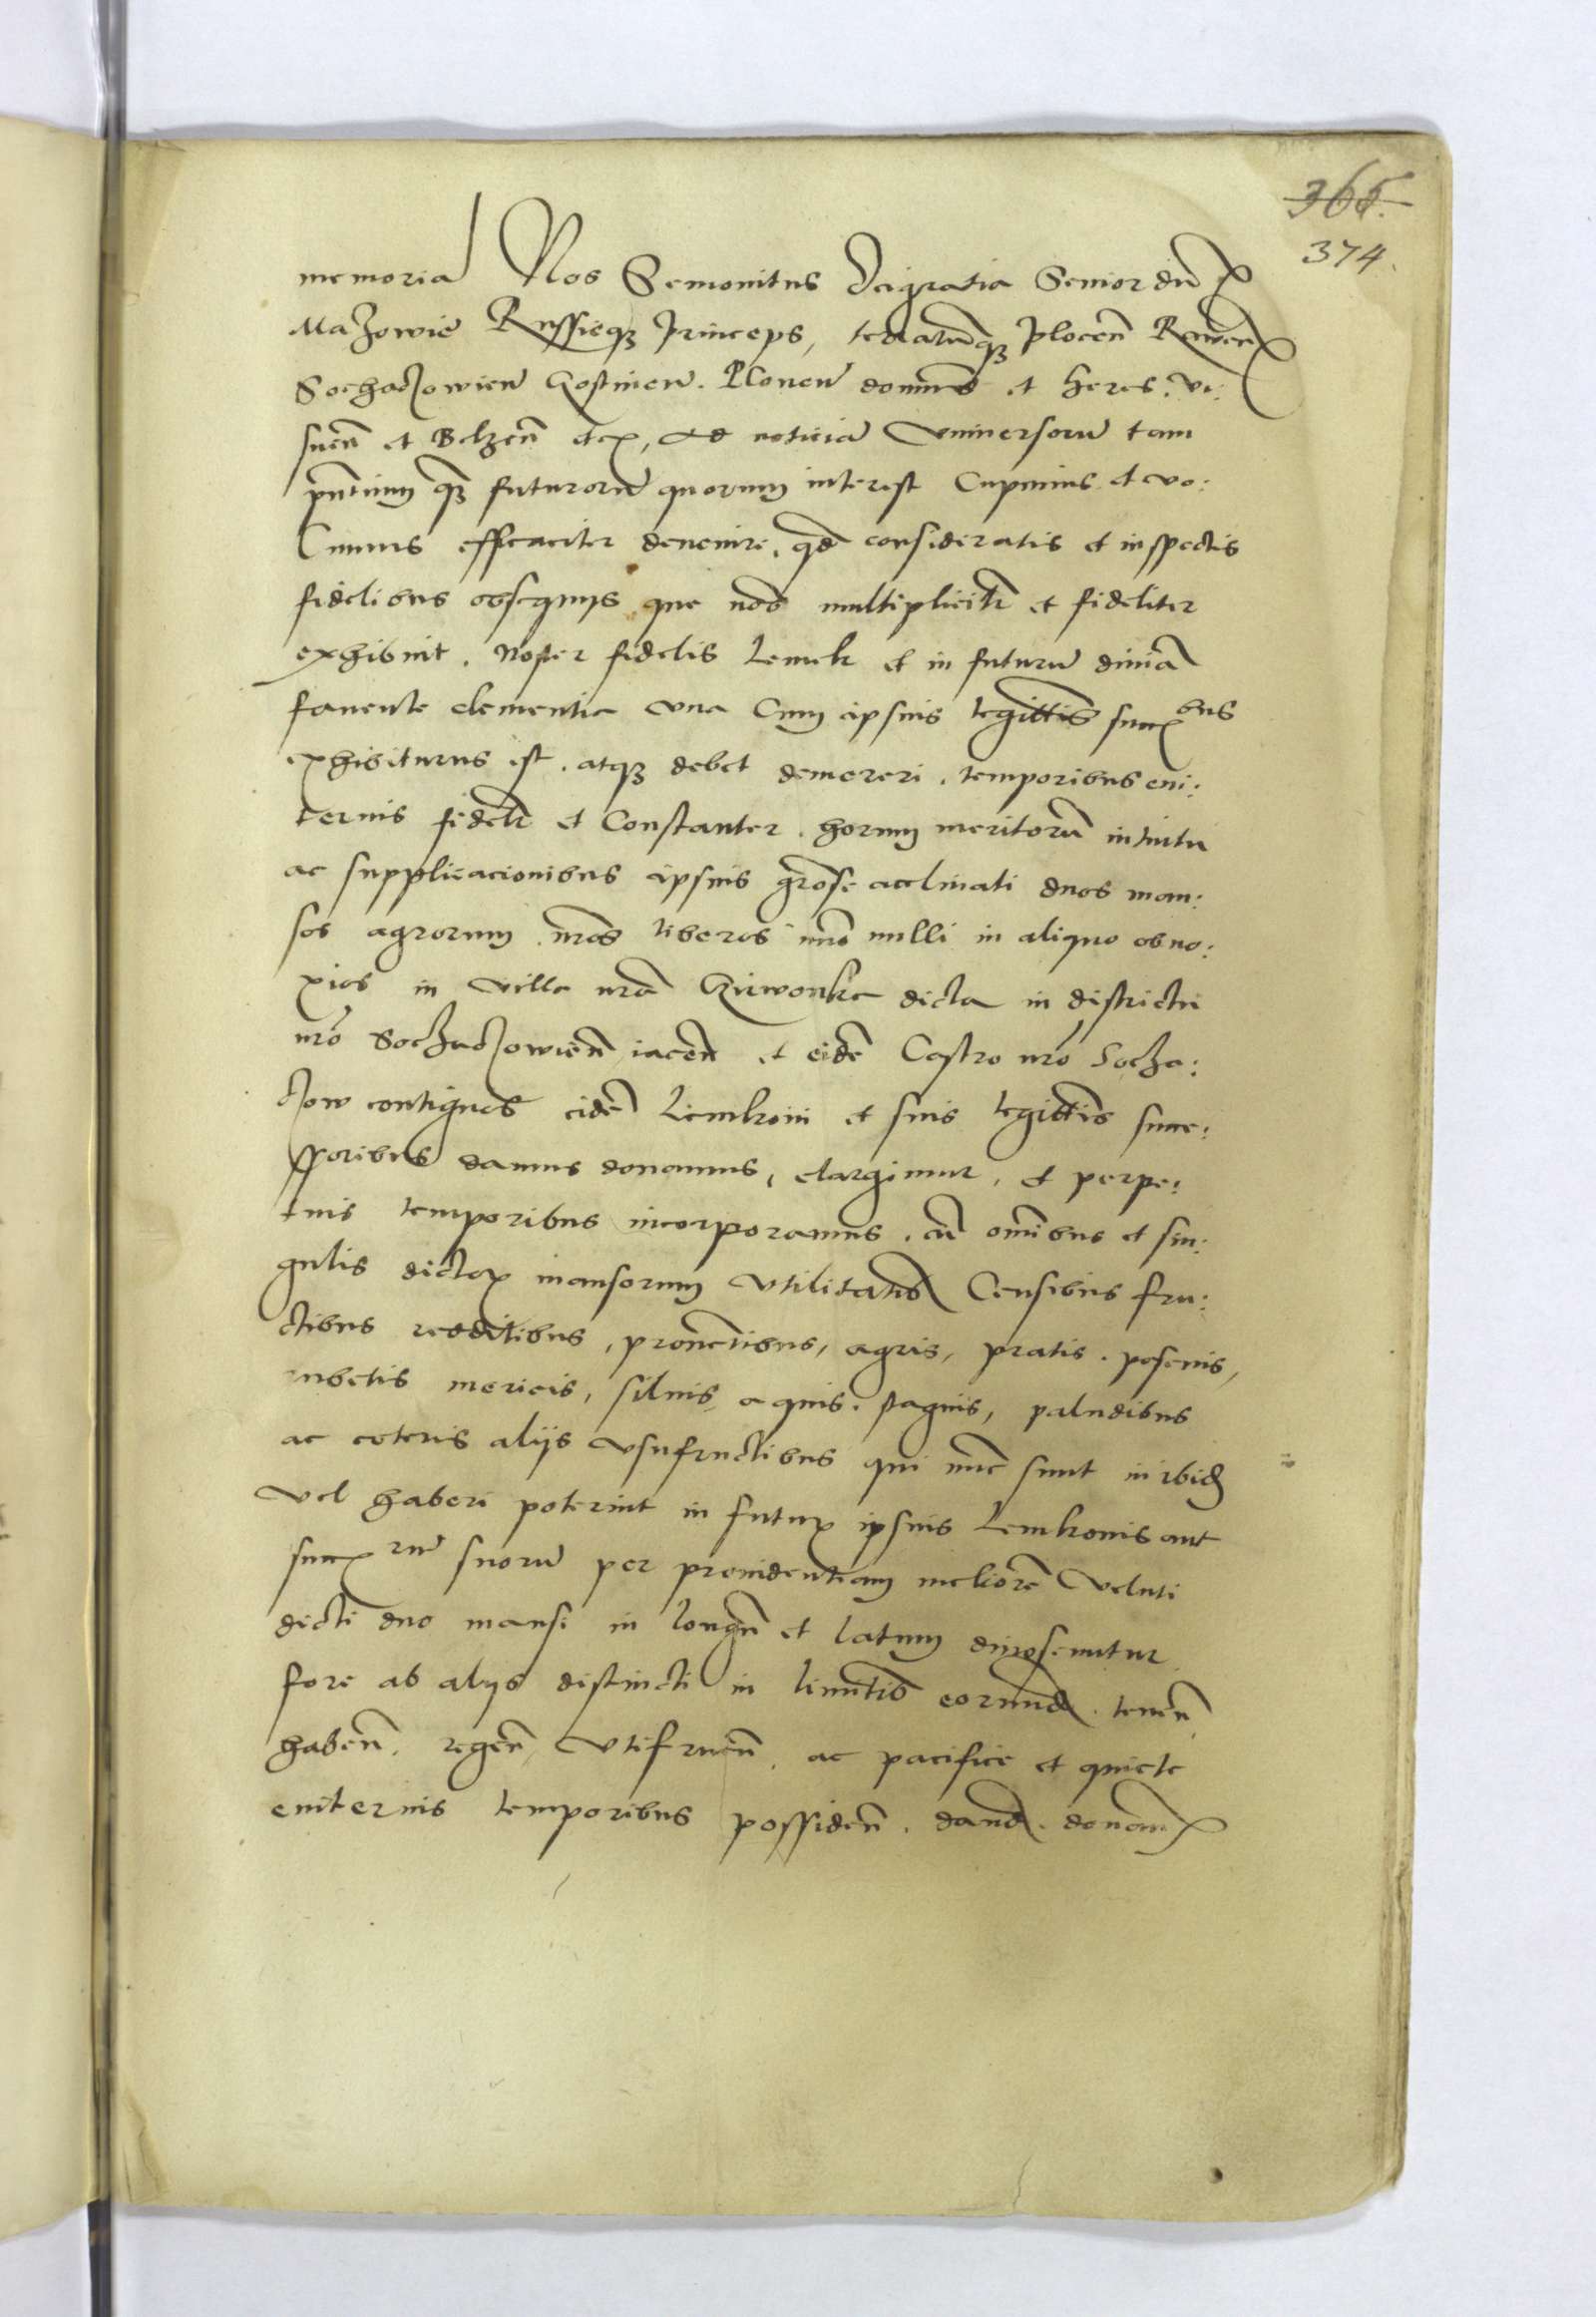 365.
374.
memoria Nos Semovitus Dei gratia Senior dux
Mazowie Russieqз Princeps, terrarumqз Plocen̄ Raven̄
Sochaczowien̄ Gostinen̄. Plonen̄ dominus et heres. Vi:
snen̄ et Belzen̄ etc, Ad noticiā Universorū tam
pn̄tium qз futurorū quorum interest Cupimus et vo:
lumus efficaciter devenire, qd consideratis et inspectis
fidelibus obsequijs que nob̄ multiplicit̄r et fideliter
exhibuit. Noster fidelis Lemek et in futurū divīa
favente clementia Una Cum ipsius legittīs succ bus
exhibiturus est. atqз debet demereri. temporibus evi:
ternis fidel̄r et Constanter. horum meritorū intuitu
ac supplicacionibus ipsius gr̄ose acclinati duos man:
sos agrorum nr̄os liberos im̄o nulli in aliquo obno:
xios in villa nr̄a dicta in districtu
nr̄o Sochaczowien̄ iacen̄ et eidē Castro nr̄o Socha:
czow contiguos eidē Lemkoni et suis legittīs succe:
ssoribus damus donamus, elargimur, et perpe:
tuis temporibus incorporamus. cū om̄ibus et sin:
gulis dictoꝝ mansorum Utilitatib Censibus fru:
ctibus redditibus, proventibus, agris, pratis. pascuis,
rubetis mericis, silvis, aquis. stagnis, paludibus
ac ceteris alijs Usufructibus qui nūc sunt inibid
Vel haberi poterint in futuꝝ ipsius Lemkonis aut
succ rū suorū per providentiam meliorē Veluti
dicti duo mansi in longū et latum dinoscuntur
fore ab alijs distincti in limitib eorumd. tenen̄
haben̄. regen̄, Utifruen̄. ac pacifice et quiete
eviternis temporibus possiden̄. dand. donan̄